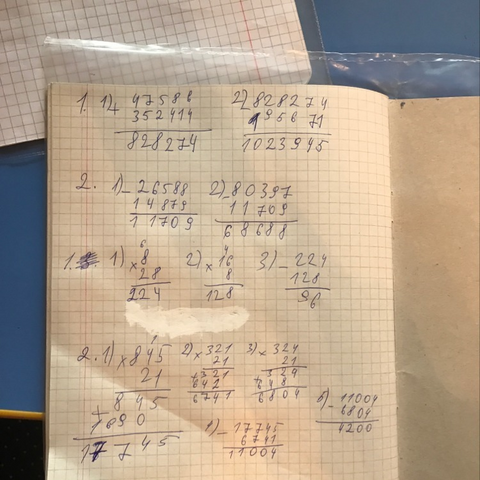 1. 1) + 47586 2) 828274
352414 195671
828274 1023945
2. 1) - 26588 2) - 80397
14879 11709
11709 68688
1. 1) 6 2) 4 3) - 224
× 8 × 16 128
28 8 96
224 128
2. 1) × 845 2) × 321 3) × 324
21 21 21
+ 845 + 321 + 324
1690 642 648
17745 6741 6804
- 17745 - 11004
6741 6804
11004 4200